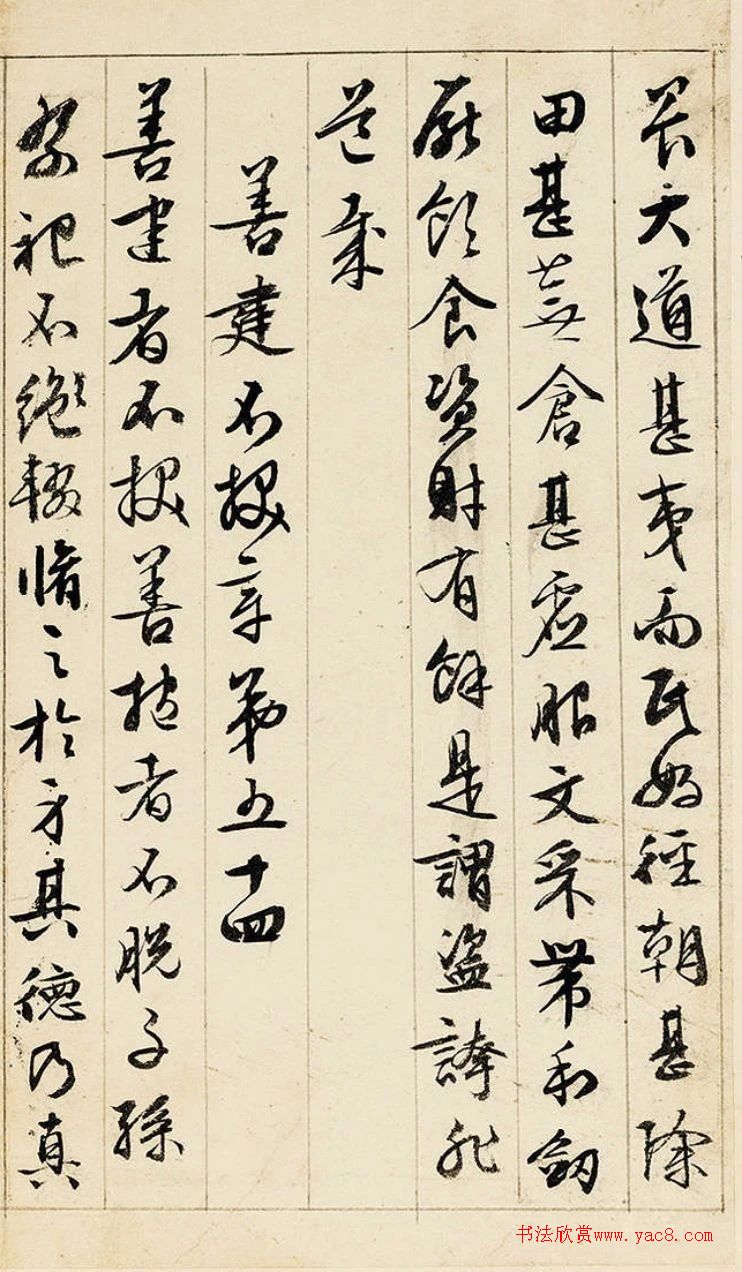 畏大道甚夷而民好徑朝甚除
田甚蕪倉甚虛服文采帶利劒
厭飲食資財有餘是謂盜誇非
道哉
善建不拔章第五十四
善建者不拔善抱者不脫子孫
祭祀不絕輟脩之於身其德乃真
书法欣赏www.yac8.com